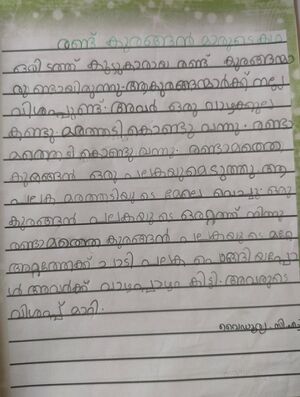 രണ്ട് കുരങ്ങൻ മാരുടെ കഥ
ഒരിടത്ത് കൂട്ടുകാരായ രണ്ട് കുരങ്ങന്മാ
രുണ്ടായിരുന്നു. ആകുരങ്ങന്മാർക്ക് നല്ല
വിശപ്പുണ്ട്. അവർ ഒരു വാഴക്കുല
കണ്ടു. മരത്തടി കൊണ്ടു വന്നു. രണ്ടാ
മത്തെ തടി കൊണ്ടു വന്നു. രണ്ടാമത്തെ
കുരങ്ങൻ ഒരു പലകയുമെടുത്തു. ആ
പലക മരത്തടിയുടെ മേലെ വെച്ചു. ഒരു
കുരങ്ങൻ പലകയുടെ ഒരറ്റത്ത് നിന്നു
രണ്ടാമത്തെ കുരങ്ങൻ പലകയുടെ മറ്റേ
അറ്റത്തേക്ക് ചാടി പലക പൊങ്ങിയപ്പോ
ൾ അവർക്ക് വാഴപ്പഴം കിട്ടി. അവരുടെ
വിശപ്പ് മാറി.